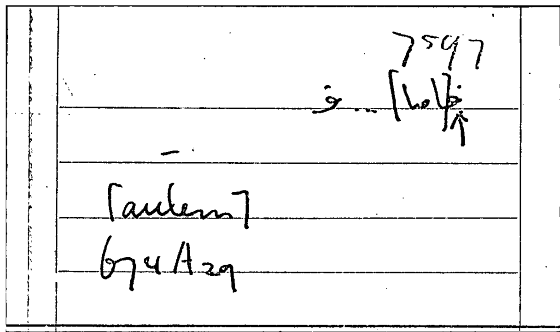 7597
... [hol]
[autem]
674 A29